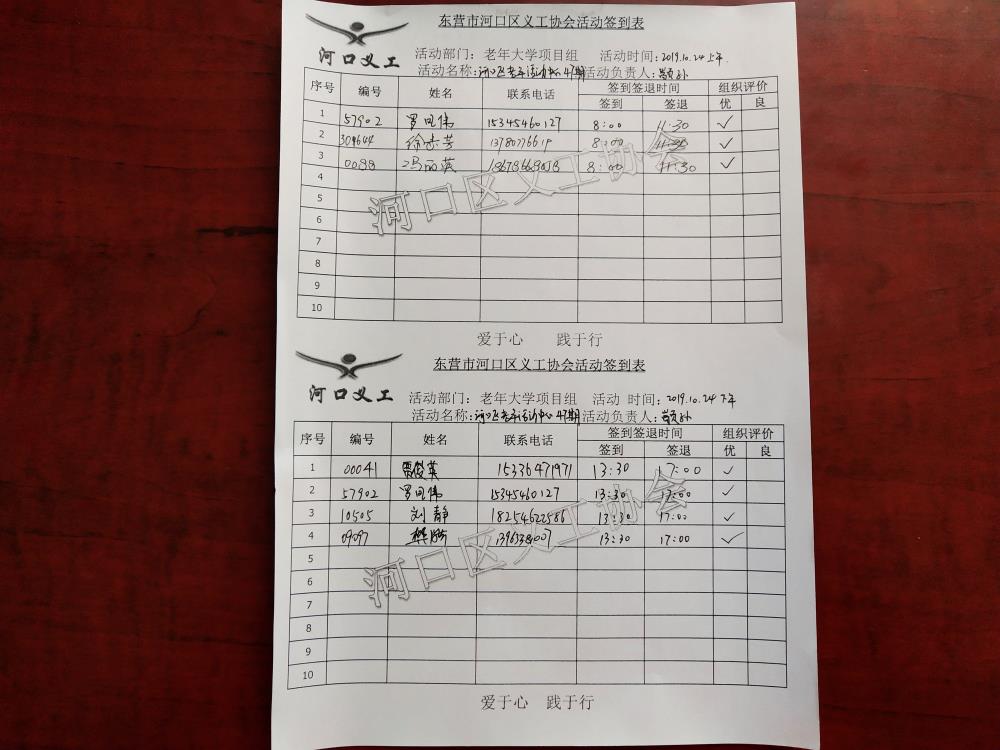 东营市河口区义工协会活动签到表
河口义工
活动部门：老年大学项目组 活动时间：2019.10.24上午
活动名称：河口区老年活动中心47期 活动负责人：
序号 编号 姓名 联系电话 签到签退时间 组织评价
签到 签退 优 良
1 57902 罗思伟 15345460127 8:00 11:30 ✓
2 309644 徐志芳 13780776619 8:00 11:30 ✓
3 0088 冯丽英 8:00 11:30 ✓
4
5
6
7
8
9
10
河口区义工协会
爱于心 践于行
东营市河口区义工协会活动签到表
河口义工
活动部门：老年大学项目组 活动 时间：2019.10.24下午
活动名称：河口区老年活动中心47期 活动负责人：
序号 编号 姓名 联系电话 签到签退时间 组织评价
签到 签退 优 良
1 00041 15336471971 13:30 17:00 ✓
2 57902 罗思伟 15345460127 13:30 17:00 ✓
3 10505 刘静 18254622586 13:30 17:00 ✓
4 09097 13:30 17:00 ✓
5
6
7
8
9
10
河口区义工协会
爱于心 践于行